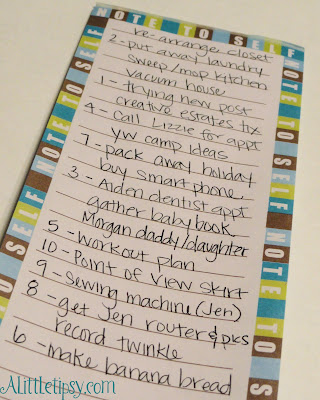 NOTE TO SELF
re-arrange closet
2 - put away laundry
sweep/mop kitchen
vacuum house
1 - trying new post
creative estates tix
4 - call Lizzie for appt
yw camp ideas
7 - pack away holiday
buy smart phone,
3 - Aiden dentist appt
gather baby book
Morgan daddy/daughter
5 - Workout plan
10 - Point of View skirt
9 - Sewing machine (Jen)
8 - get Jen router & pics
record twinkle
6 - make banana bread
NOTE TO SELF
NOTE TO SELF
NOTE TO
SELF
ALittletipsy.com